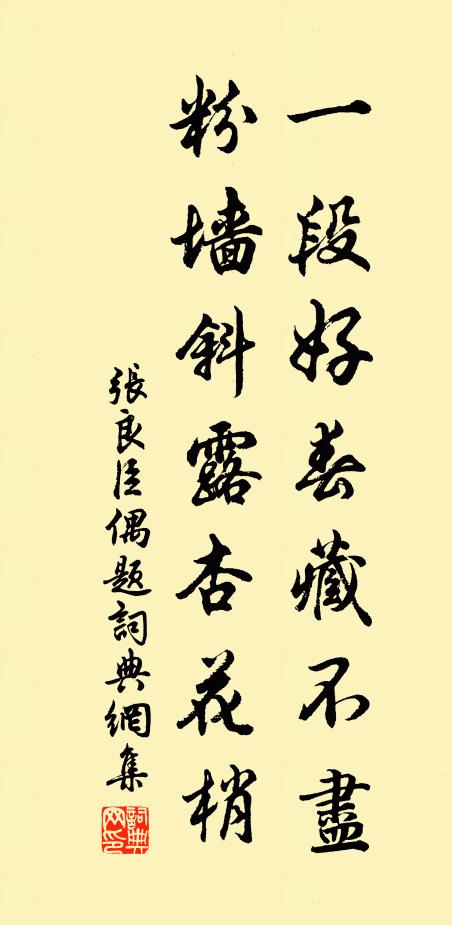 一段好春藏不盡
粉墻斜露杏花梢
張良臣偶題詞典網集
詞典網印